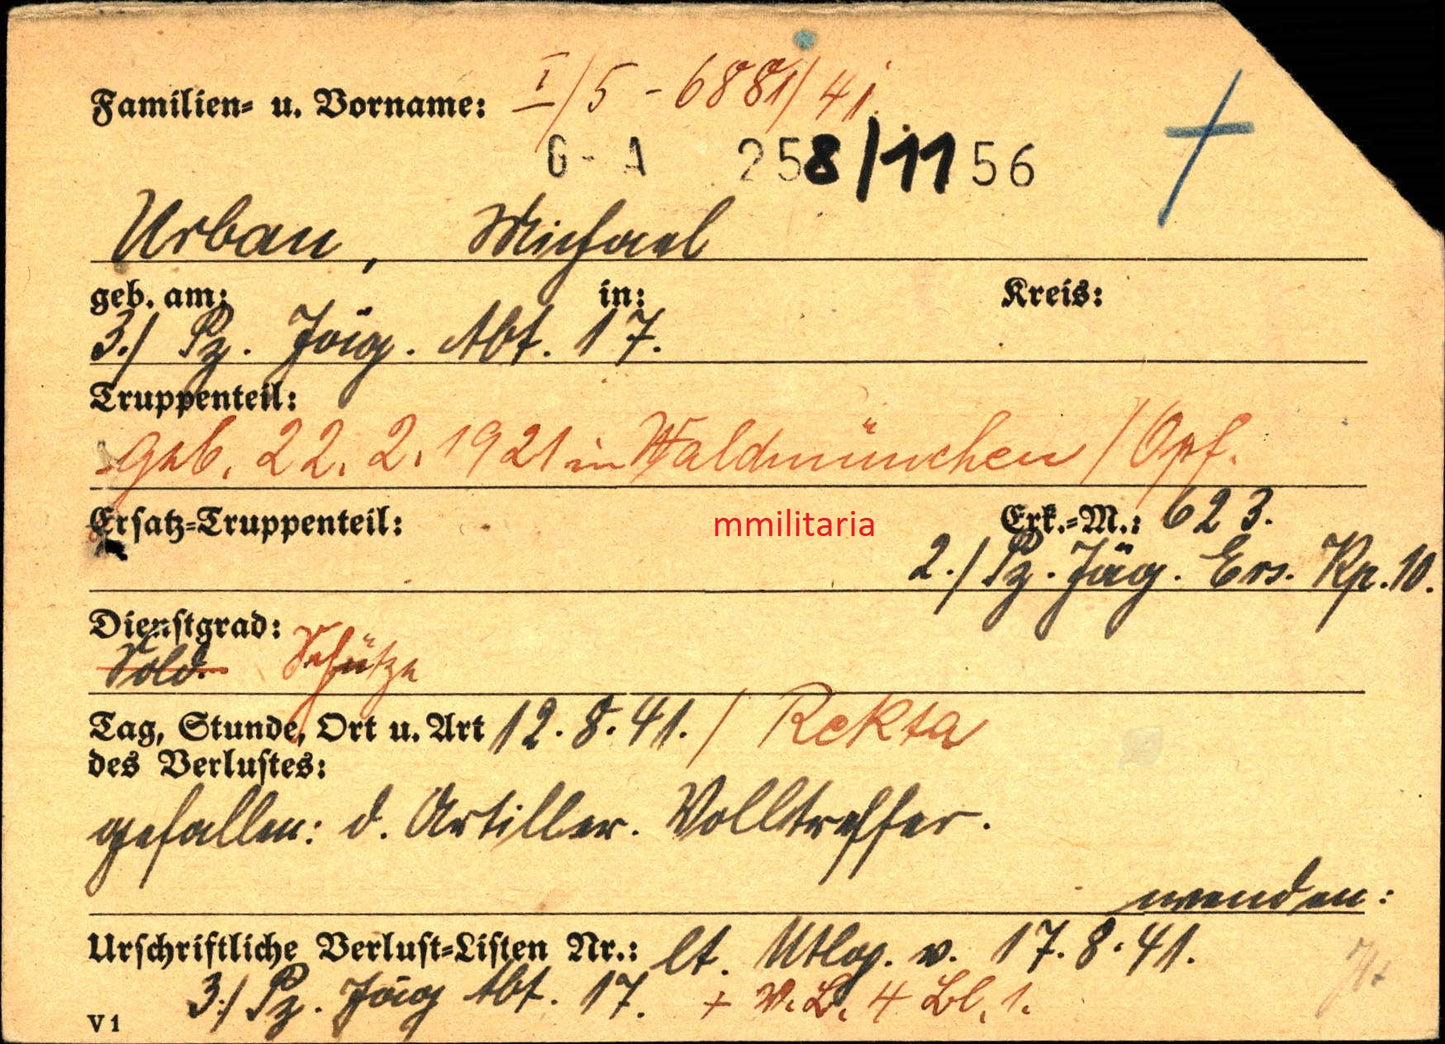 Familien= u. Vorname: I/5 - 6881/41.
G - A 258/11 56
Urban, Michael
geb. am: in: Kreis:
3./ Pz. Jäg. Abt. 17.
Truppenteil:
geb. 22. 2. 1921 in Waldmünchen / Opf.
Ersatz=Truppenteil: mmilitaria Erk.=M.: 623.
2./ Pz. Jäg. Ers. Kp. 10.
Dienstgrad:
Sold. Schütze
Tag, Stunde, Ort u. Art 12. 8. 41. / Rekta
des Verlustes:
gefallen: d. Artiller. Volltreffer.
wenden:
Urschriftliche Verlust=Listen Nr.: lt. v. 17. 8. 41.
3./ Pz. Jäg Abt. 17. + V. L. 4 Bl. 1.
V 1